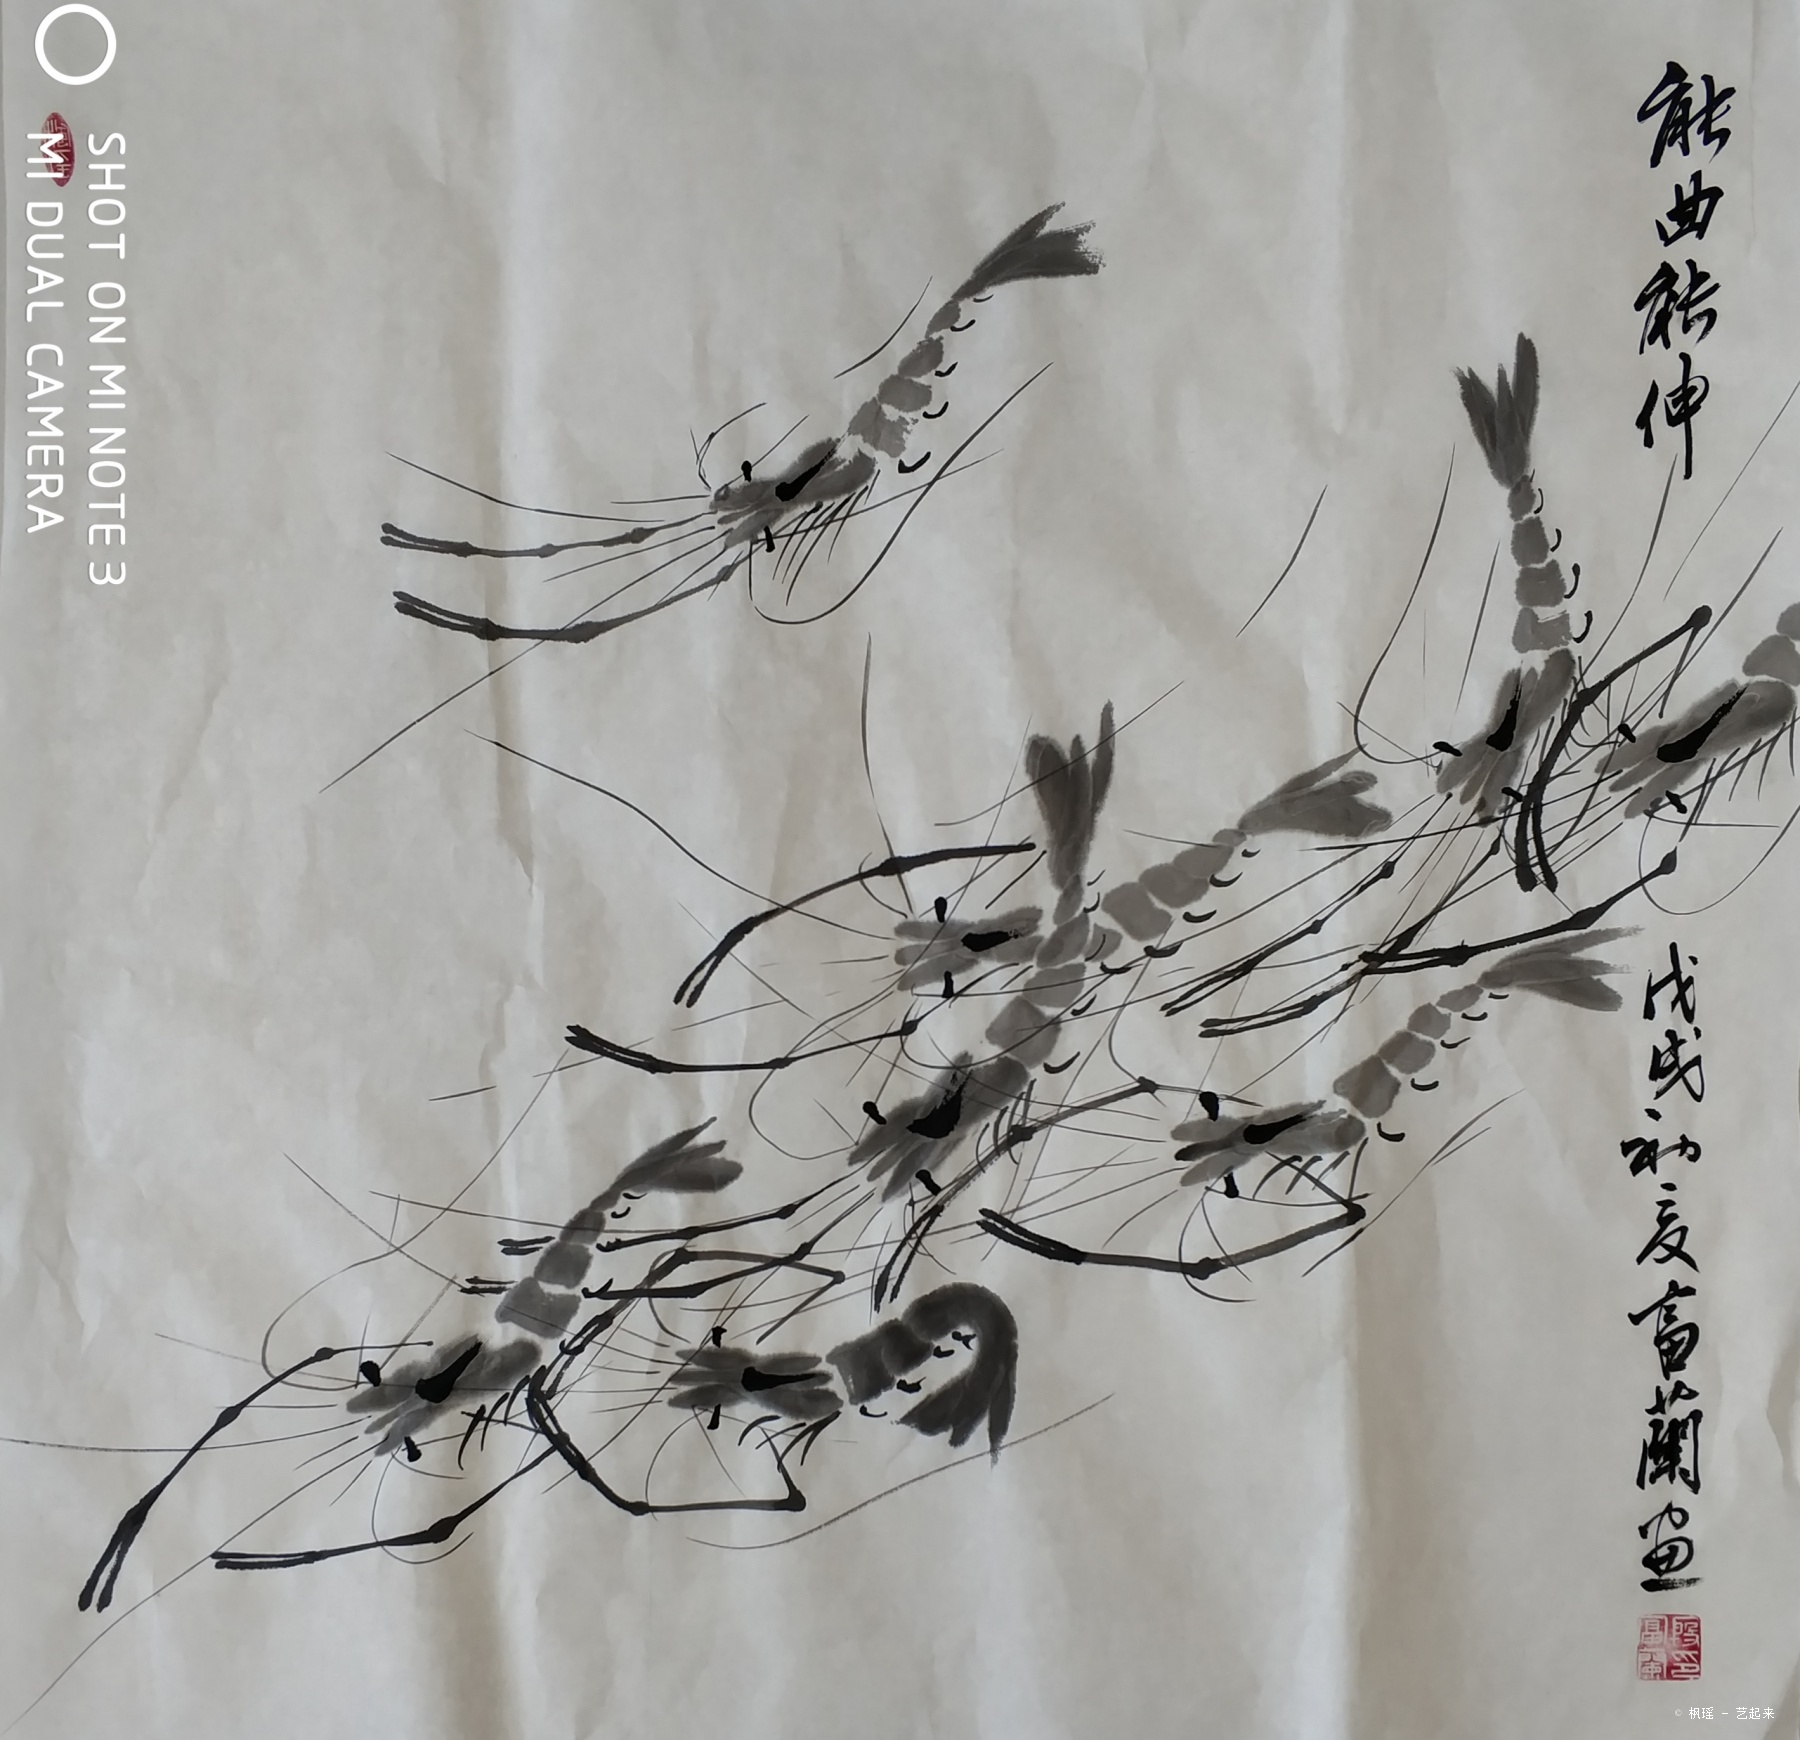 能曲能伸
戊戌初夏富蘭画
SHOT ON MI NOTE 3
MI DUAL CAMERA
© 枫瑶 - 艺起来